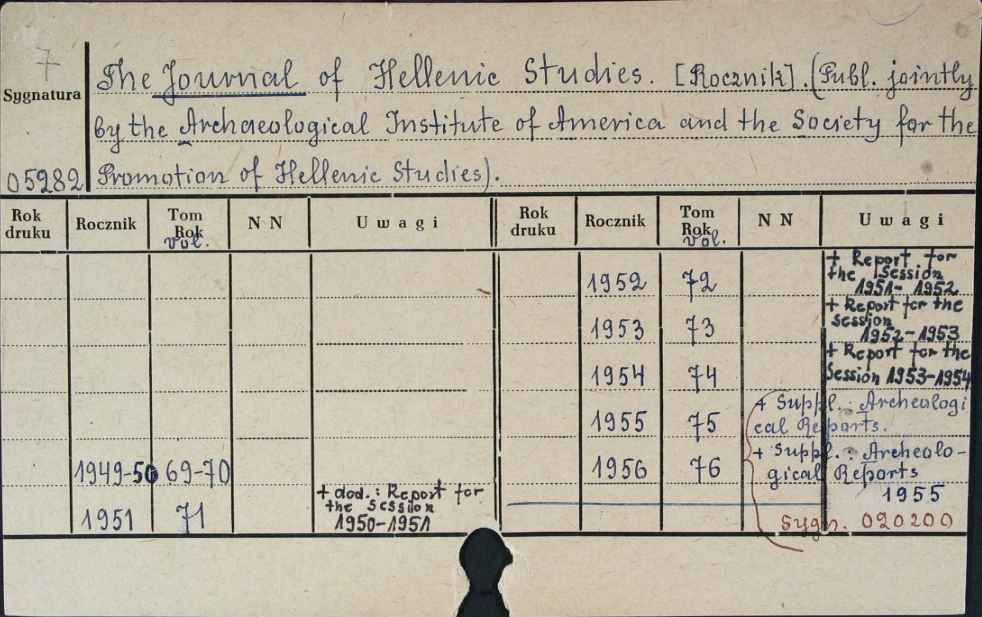 7
Sygnatura
05282
The Journal of Hellenic Studies. [Rocznik]. (Publ. jointly
by the Archaeological Institute of America and the Society for the
Promotion of Hellenic Studies).
Rok druku Rocznik Tom Rok vol. N N Uwagi Rok druku Rocznik Tom Rok vol. N N Uwagi
1949-50 69-70
1951 71 + dod.: Report for
the session
1950-1951
1952 72 + Report for
the Session
1951-1952
1953 73 + Report for the
session
1952-1953
1954 74 + Report for the
Session 1953-1954
1955 75 + Suppl.: Archeologi
cal Reports.
1956 76 + Suppl.: Archeolo-
gical Reports
1955
Sygn. 020200